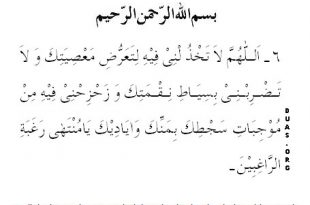 بسم الله الرّحمن الرّحيم
٦ـ اَللّٰهُمَّ لاَ تَخْذُ لْنِىْ فِيْهِ لِتَعَرُّضِ مَعْصِيَتِكَ وَ لاَ
تَضْرِبْنِىْ بِسِيَاطِ نِقْمَتِكَ وَ زَحْزِحْنِىْ فِيْهِ مِنْ
مُوْجِبَاتِ سَخَطِكَ بِمَنِّكَ وَاَيَادِيْكَ يَامُنْتَهٰى رَغْبَةِ
الرَّاغِبِيْنَ۔
DUAS.ORG